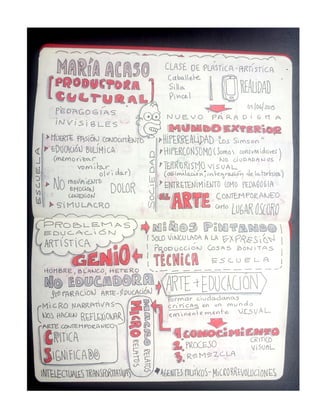 MARÍA ACASO
[PRODUCTORA
CULTURAL]
PEDAGOGÍAS
INVISIBLES
ESCUELA
MUERTE PASIÓN CONOCIMIENTO
EDUCACIÓN BULÍMICA
(memorizar
vomitar
olvidar)
NO MOVIMIENTO
EMOCIÓN
CONEXIÓN
DOLOR
SIMULACRO
CLASE DE PLÁSTICA-ARTÍSTICA
Caballete
Silla
Pincel
REALIDAD
NUEVO PARADIGMA
MUNDO EXTERIOR
SOCIEDAD
HIPERREALIDAD Los Simson
HIPERCONSUMO (Somos consumidores)
NO CIUDADANOS
TERRORISMO VISUAL
ENTRETENIMIENTO como PEDAGOGÍA
el ARTE CONTEMPORÁNEO
como LUGAR OSCURO
PROBLEMAS
EDUCACIÓN
ARTÍSTICA
GENIO+
HOMBRE, BLANCO, HETERO
NO EDUCADORA
SEPARACIÓN ARTE-EDUCACIÓN
MICRO NARRATIVAS
NOS HACEN REFLEXIONAR
ARTE CONTEMPORÁNEO
CRÍTICA
SIGNIFICADO
INTELECTUALES TRANSFORMATIVAS
MICRO RELATOS
MACRO RELATOS
NIÑOS PINTANDO
SOLO VINCULADA A LA EXPRESIÓN
PRODUCCION COSAS BONITAS
TÉCNICA ESCUELA
ARTE + EDUCACIÓN
Formar ciudadanas
críticas en un mundo
eminentemente VISUAL
1. CONOCIMIENTO
2. PROCESO CRÍTICO
VISUAL
3. REMEZCLA
AGENTES POLÍTICOS-MICRORREVOLUCIONES